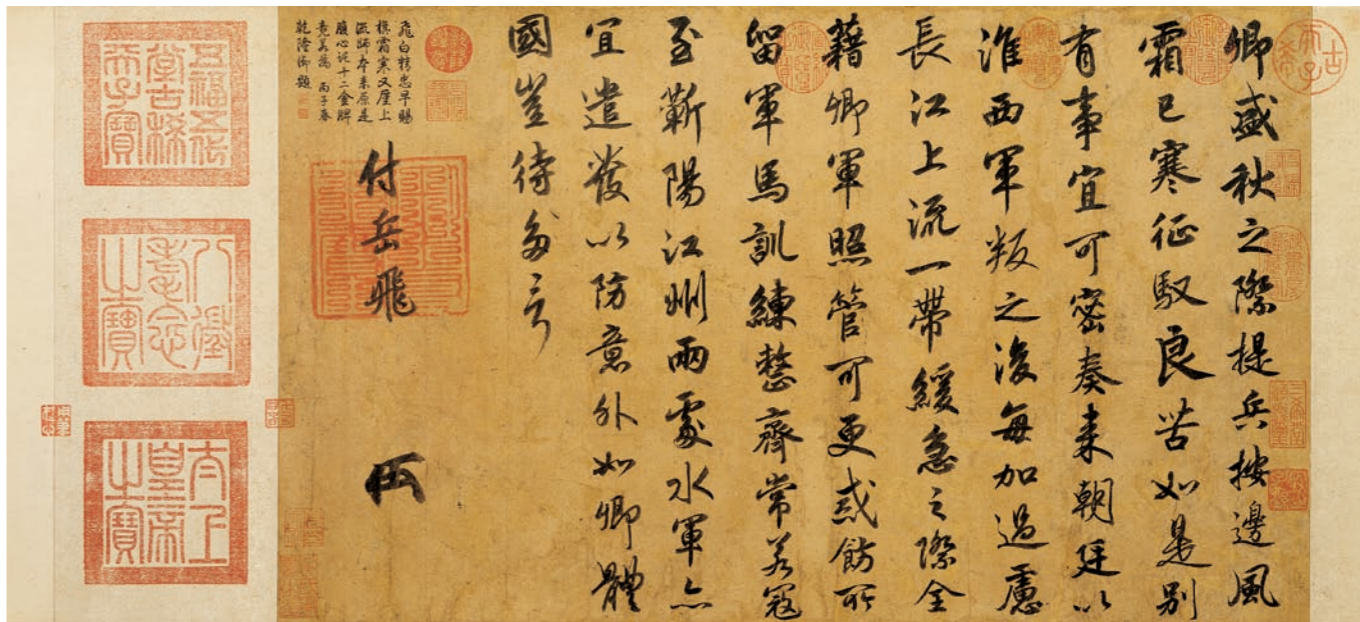 古希天子
卿盛秋之際提兵按邊風
霜已寒征馭良苦如是別
有事宜可密奏來朝廷以
淮西軍叛之後每加過慮
長江上流一帶緩急之際全
藉卿軍照管可更戒飭所
留軍馬訓練整齊常若寇
至蘄陽江州兩處水軍亦
宜遣發以防意外如卿體
國豈待多言
付岳飛
飛白精忠早賜
旗霜寒又廑上
流師本來原是
腹心託十二金牌
竟若為 丙子春
乾隆御題
五福五代
堂古稀
天子寶
八徵
耄念
之寶
太上
皇帝
之寶